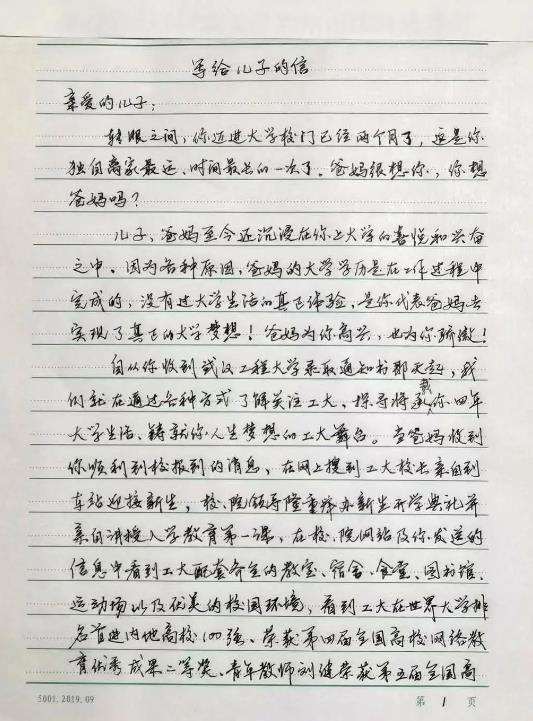 写给儿子的信
亲爱的儿子：
转眼之间，你迈进大学校门已经两个月了，这是你
独自离家最远、时间最长的一次了。爸妈很想你，你想
爸妈吗？
儿子，爸妈至今还沉浸在你上大学的喜悦和兴奋
之中。因为各种原因，爸妈的大学学历是在工作过程中
完成的，没有过大学生活的真正体验，是你代表爸妈去
实现了真正的大学梦想！爸妈为你高兴，也为你骄傲！
自从你收到武汉工程大学录取通知书那天起，我
们就在通过各种方式了解关注工大，探寻将承载你四年
大学生活、铸就你人生梦想的工大舞台。当爸妈收到
你顺利到校报到的消息，在网上搜到工大校长亲自到
车站迎接新生，校、院领导隆重举办新生开学典礼并
亲自讲授入学教育第一课，在校、院网站及你发送的
信息中看到工大配套齐全的教室、宿舍、食堂、图书馆、
运动场以及优美的校园环境，看到工大在世界大学排
名首进内地高校100强、荣获第四届全国高校网络教
育优秀成果二等奖、青年教师刘健荣获第五届全国高
5001.2019.09
第 1 页